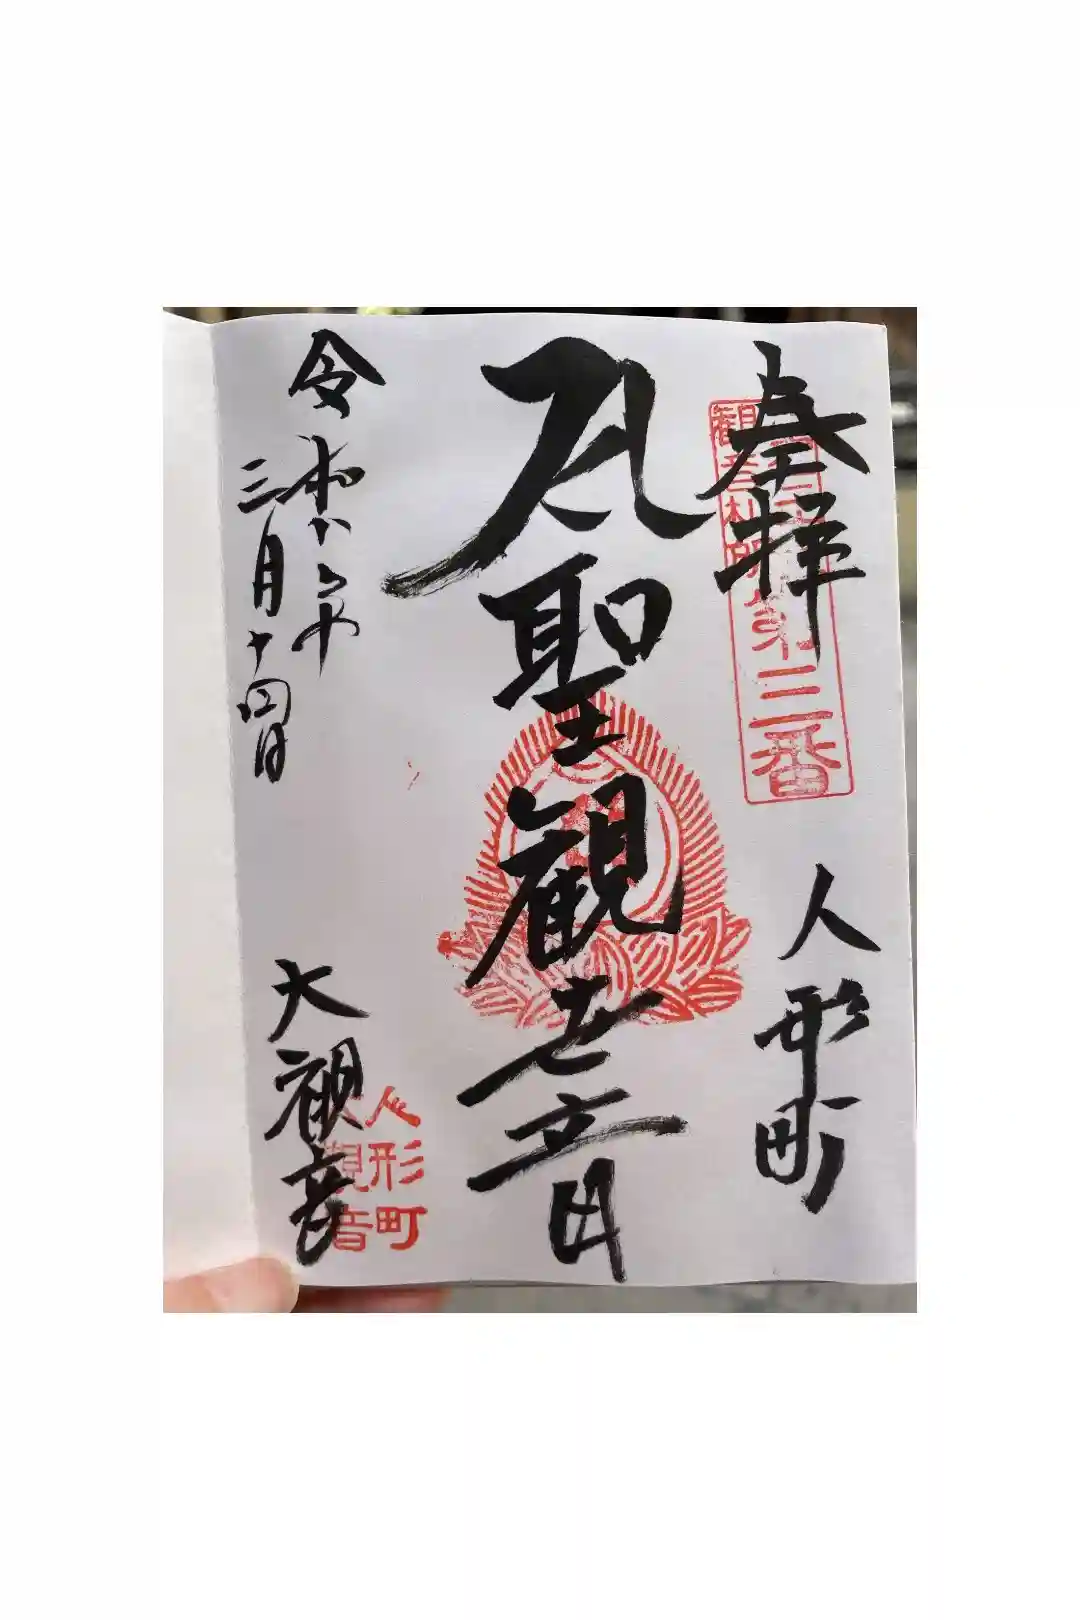 奉拝
観音札所第三番
人形町
聖観世音
令和八年
三月十四日
大観音
人形町
観音